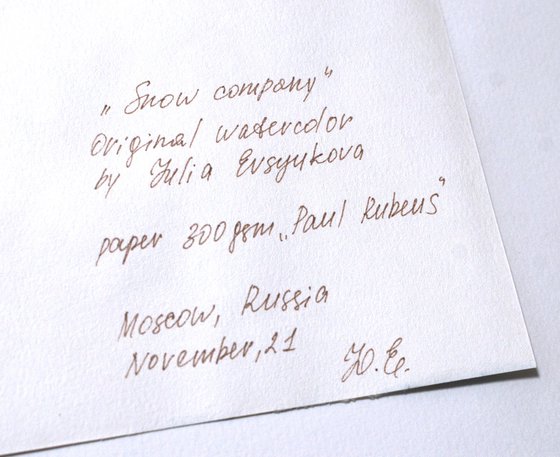 „Snow company"
Original watercolor
by Julia Evsyukova
paper 300gsm „Paul Rubens"
Moscow, Russia
November, 21
Ю.Е.